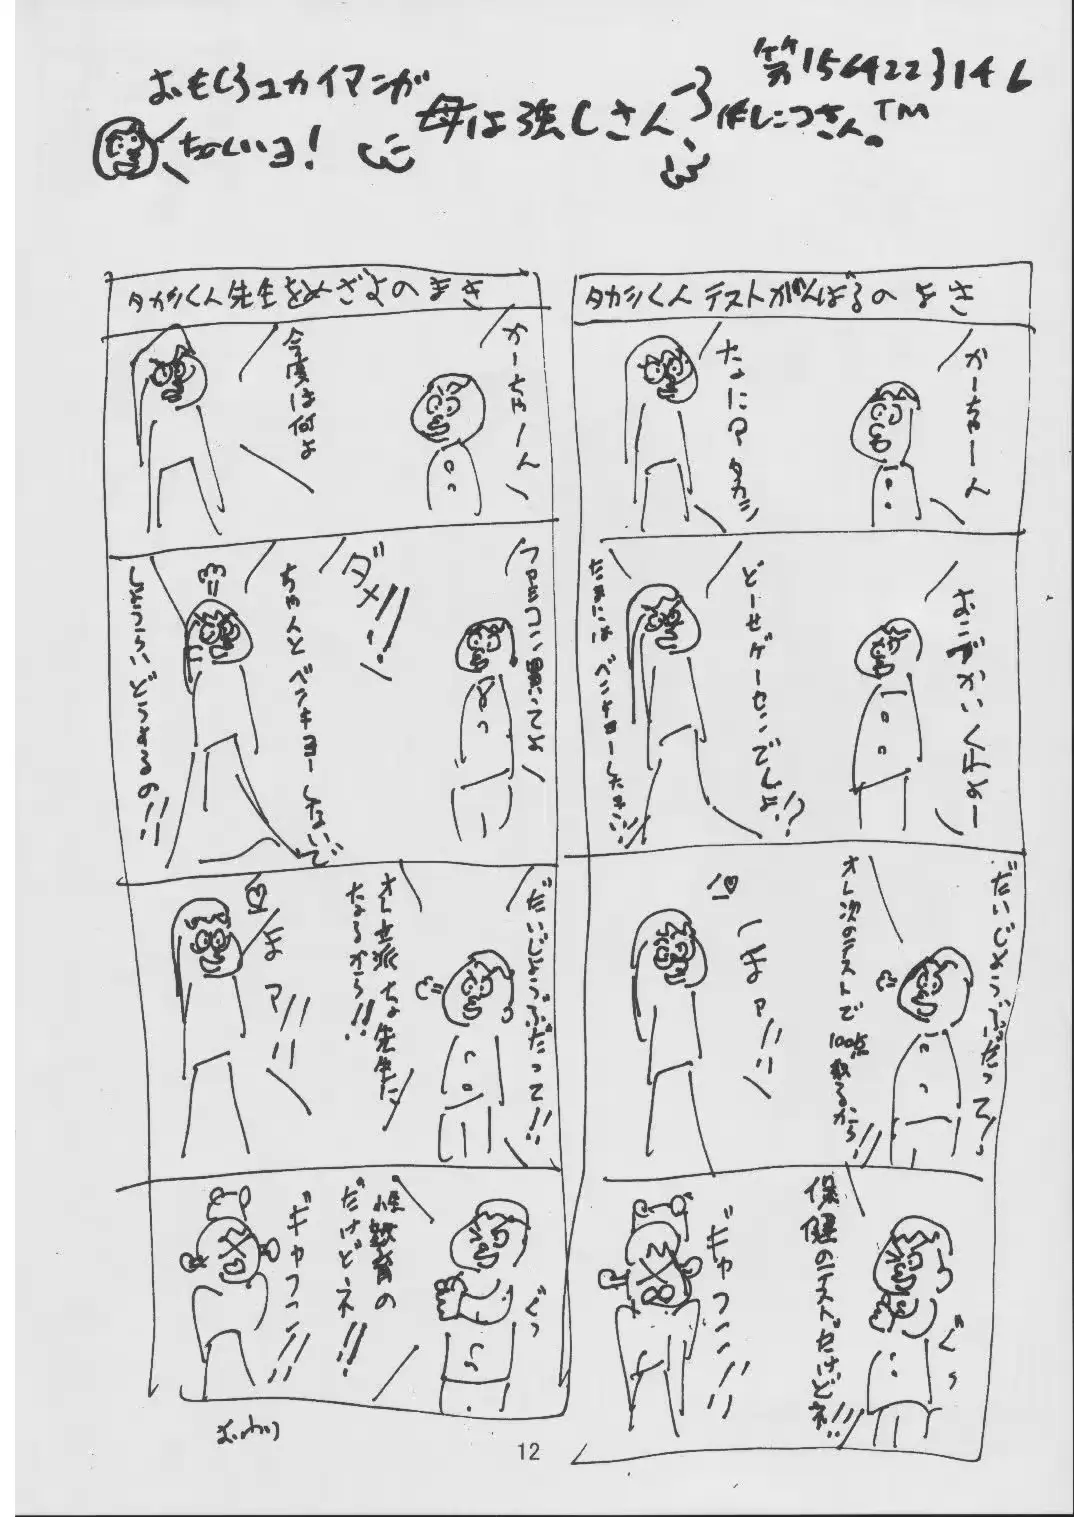 第1564223146
おもしろユカイマンガ
母は強しさん
作しこつさん。TM
ちゅーいヨ!
タカシくん テストがんばるの まき
かーちゃーん
なに?タカシ
おこづかいくれよー
どーせゲーセンでしょ!?
たまにはベンキョーしなさい!!
だいじょうぶだって!
オレ次のテストで
100点取るから!!
まァ!!
保健のテストだけどネ!!
ぐっ
ギャフン!!
タカシくん先生をめざすの まき
かーちゃーん
今度は何よ
ダメ!!
ちゃんとベンキョーしないで
しょうらいどうするの!!
だいじょうぶだって!!
オレ立派な先生に
なるから!!
まァ!!
性教育の
だけどネ!!
ぐっ
ギャフン!!
おわり
12